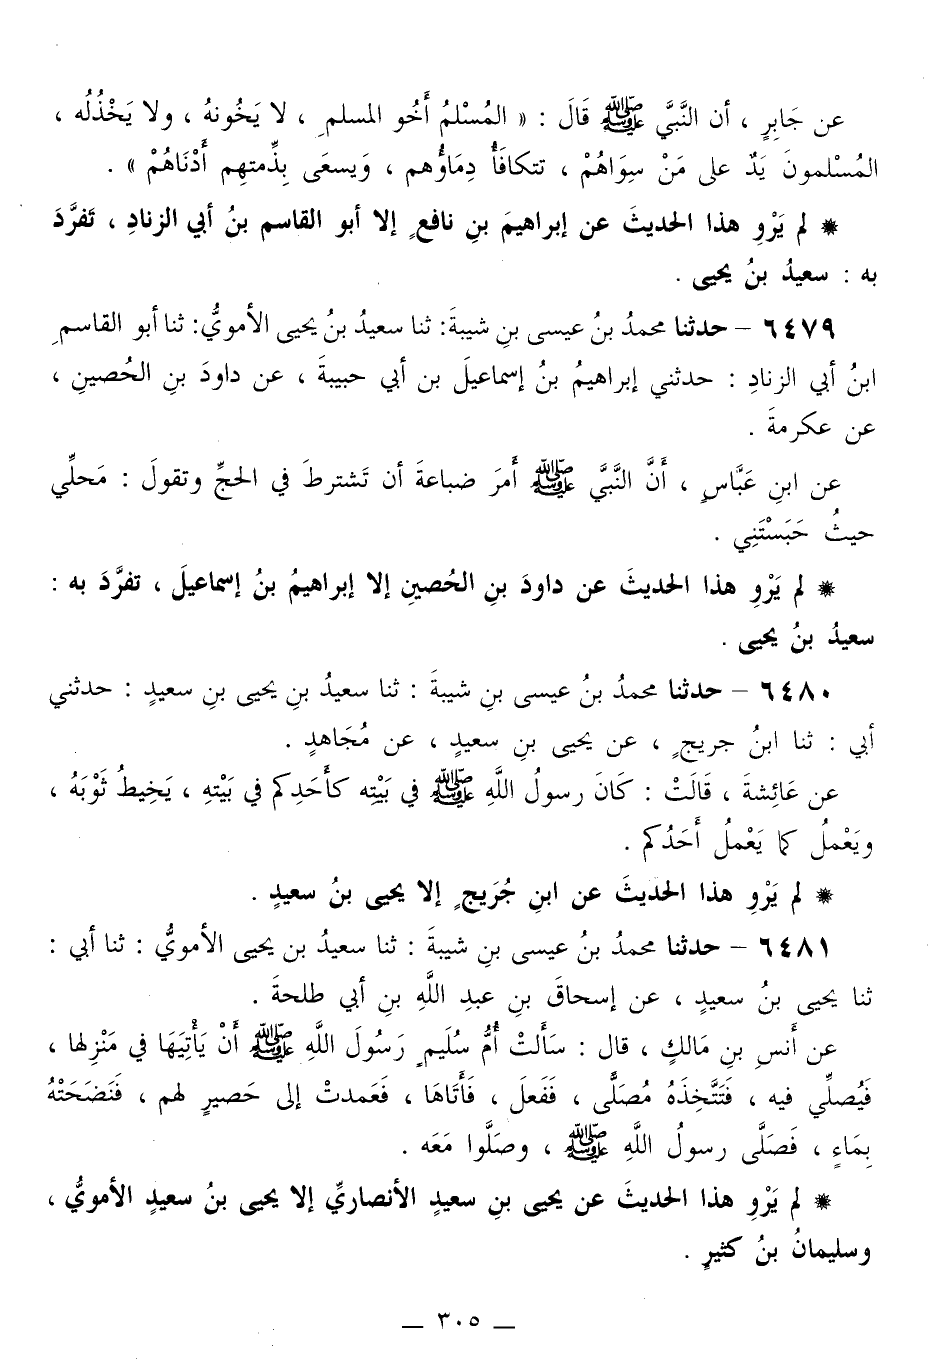 عن جَابِرٍ ، أن النَّبيَّ ﷺ قَالَ : « المُسْلمُ أَخُو المسلمِ ، لا يَخُونهُ ، ولا يَخْذُلُه ،
المُسْلمونَ يَدٌ على مَنْ سِوَاهُمْ ، تتكافَأُ دِمَاؤُهم ، وَيسعَى بِذِّمتهِم أَدْنَاهُمْ » .
* لم يَرْوِ هذا الحديثَ عن إبراهيمَ بنِ نافعٍ إلا أبو القاسم بنُ أبي الزنادِ ، تَفرَّدَ
به : سعيدُ بنُ يحيى .
٦٤٧٩ – حدثنا محمدُ بنُ عيسى بنِ شيبةَ: ثنا سعيدُ بنُ يحيى الأمويُّ: ثنا أبو القاسمِ
ابنُ أبي الزنادِ : حدثني إبراهيمُ بنُ إسماعيلَ بن أبي حبيبةَ ، عن داودَ بنِ الحُصينِ ،
عن عكرمةَ .
عن ابنِ عَبَّاسٍ ، أَنَّ النَّبيَّ ﷺ أَمرَ ضباعةَ أن تَشترطَ في الحجِّ وتقولَ : مَحلِّي
حيثُ حَبَسْتَنِي .
* لم يَرْوِ هذا الحديثَ عن داودَ بنِ الحُصينِ إلا إبراهيمُ بنُ إسماعيلَ ، تفرَّدَ به :
سعيدُ بنُ يحيى .
٦٤٨٠ – حدثنا محمدُ بنُ عيسى بنِ شيبةَ : ثنا سعيدُ بنِ يحيى بنِ سعيدٍ : حدثني
أبي : ثنا ابنُ جريجٍ ، عن يحيى بنِ سعيدٍ ، عن مُجَاهدٍ .
عن عَائِشةَ ، قَالَتْ : كَانَ رسولُ اللَّهِ ﷺ في بَيْتِه كأَحَدِكم في بَيْتهِ ، يَخِيطُ ثَوْبَهُ ،
ويَعْملُ كما يَعْملُ أَحَدُكم .
* لم يَرْوِ هذا الحديثَ عن ابنِ جُرَيجٍ إلا يحيى بنُ سعيدٍ .
٦٤٨١ – حدثنا محمدُ بنُ عيسى بنِ شيبةَ : ثنا سعيدُ بن يحيى الأمويُّ : ثنا أبي :
ثنا يحيى بنُ سعيدٍ ، عن إسحاقَ بنِ عبدِ اللَّهِ بنِ أبي طلحةَ .
عن أَنسِ بنِ مَالكٍ ، قال : سَأَلتْ أُمُّ سُلَيمٍ رَسُولَ اللَّهِ ﷺ أَنْ يَأْتِيَهَا في مَنْزِلها ،
فَيُصلِّي فيه ، فَتَتَّخِذَهُ مُصَلَّى ، فَفَعلَ ، فَأَتَاهَا ، فَعَمدتْ إلى حَصيرٍ لهم ، فَنَضَحَتْهُ
بِمَاءٍ ، فَصَلَّى رسولُ اللَّهِ ﷺ ، وصَلَّوا مَعَه .
* لم يَرْوِ هذا الحديثَ عن يحيى بنِ سعيدٍ الأنصاريِّ إلا يحيى بنُ سعيدٍ الأمويُّ ،
وسليمانُ بنُ كثيرٍ .
— ٣٠٥ —